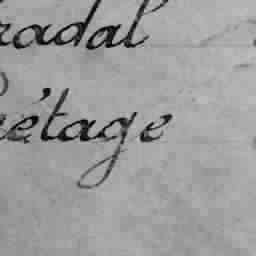 radal
étage